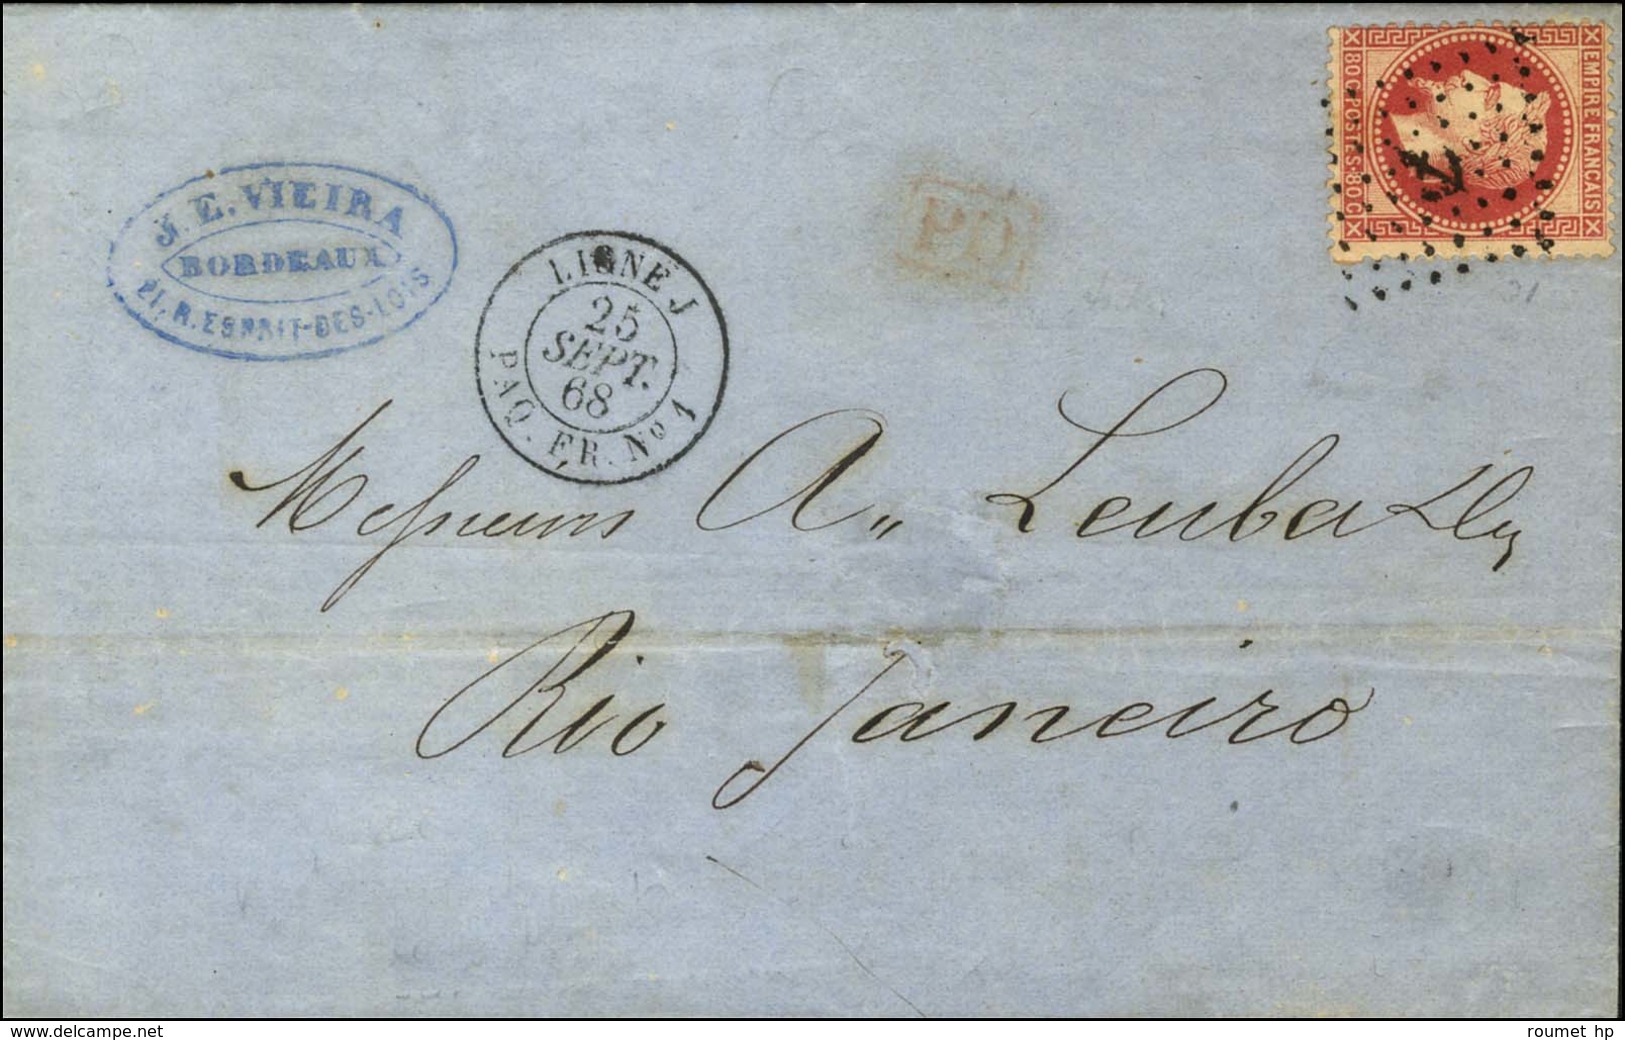 EMPIRE FRANCAIS
80C POSTES 80C
J. E. VIEIRA
BORDEAUX
21, R. ESPRIT-DES-LOIS
PD
LIGNE J
25
SEPT.
68
PAQ. FR. No 1
Messieurs A. Leuba &
Rio Janeiro
www.delcampe.net
roumet hp